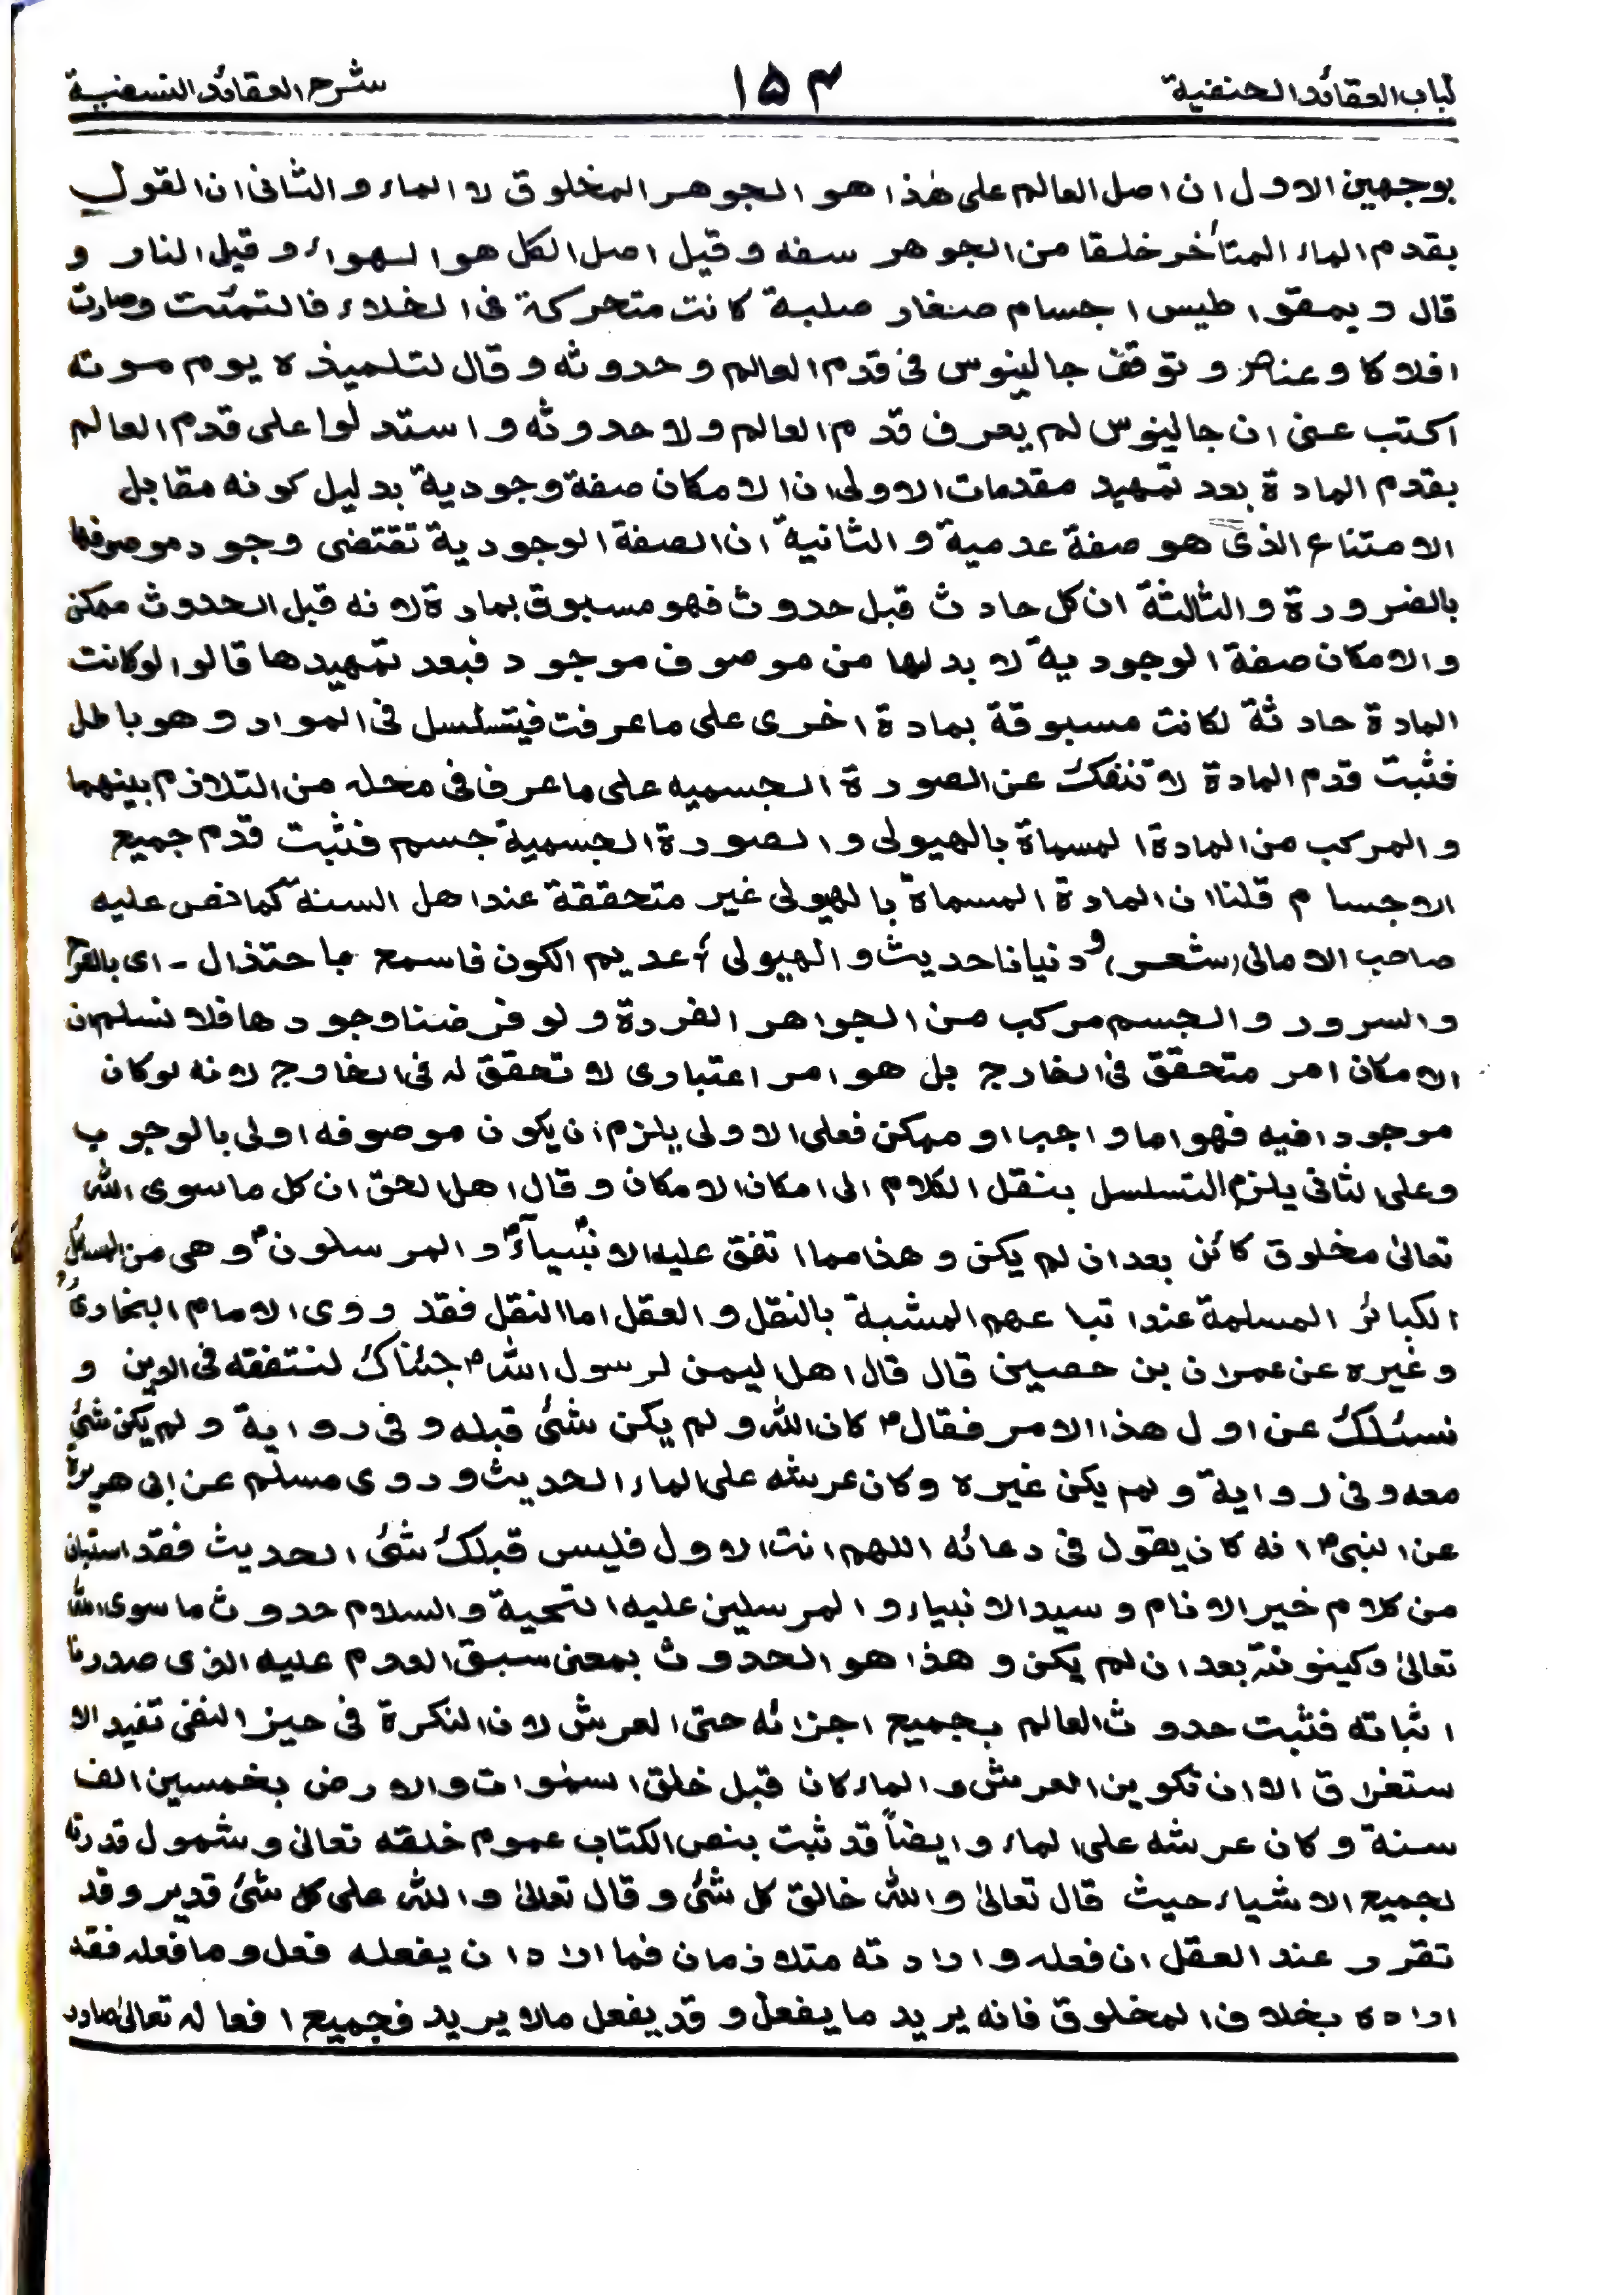 لباب العقائد الحنفية
١٥٣
شرح العقائد النسفية
بوجهين الاول ان اصل العالم على هٰذا هو الجوهر المخلوق لا الماء و الثانى ان القول
بقدم الماء المتأخر خلقا من الجوهر سفه و قيل اصل الكل هو الهواء و قيل النار و
قال ديمقراطيس اجسام صغار صلبة كانت متحركة فى الخلاء فالتمّت وصارت
افلاكا و عناصر و توقف جالينوس فى قدم العالم و حدوثه و قال لتلميذه يوم موته
اكتب عنى ان جالينوس لم يعرف قدم العالم ولا حدوثه و استدلوا على قدم العالم
بقدم المادة بعد تمهيد مقدمات الاولى ان الامكان صفة وجودية بدليل كونه مقابل
الامتناع الذى هو صفة عدمية و الثانية ان الصفة الوجودية تقتضى وجود موصوفها
بالضرورة والثالثة ان كل حادث قبل حدوث فهو مسبوق بمادة لانه قبل الحدوث ممكن
والامكان صفة الوجودية لا بد لها من موصوف موجود فبعد تمهيدها قالوا لوكانت
المادة حادثة لكانت مسبوقة بمادة اخرى على ما عرفت فيتسلسل فى المواد و هو باطل
فثبت قدم المادة لا تنفك عن الصورة الجسميه على ما عرف فى محله من التلازم بينهما
و المركب من المادة المسماة بالهيولى و الصورة الجسمية جسم فثبت قدم جميع
الاجسام قلنا ان المادة المسماة بالهيولى غير متحققة عند اهل السنة كما نص عليه
صاحب الامالى (شعر) و دنيانا حديث و الهيولى ؛ عديم الكون فاسمع باحتذال - اى بالفرح
و السرور و الجسم مركب من الجواهر الفردة و لو فرضنا وجودها فلا نسلم ان
الامكان امر متحقق فى الخارج بل هو امر اعتبارى لا تحقق له فى الخارج لانه لوكان
موجودا فيه فهو اما واجب او ممكن فعلى الاولى يلزم ان يكون موصوفه اولى بالوجوب
وعلى الثانى يلزم التسلسل بنقل الكلام الى امكان الامكان و قال اهل الحق ان كل ما سوى الله
تعالىٰ مخلوق كائن بعد ان لم يكن و هذا مما اتفق عليه الانبيآء و المرسلون و هى من المسائل
الكبائر المسلمة عند اتباعهم المشبة بالنقل و العقل اما النقل فقد روى الامام البخارى
و غيره عن عمران بن حصين قال قال اهل اليمن لرسول الله جئناك لنتفقه فى الدين و
نسئلك عن اول هذا الامر فقال كان الله و لم يكن شئ قبله و فى رواية و لم يكن شئ
معه و فى رواية و لم يكن غيره و كان عرشه على الماء الحديث و روى مسلم عن ابى هريرة
عن النبى انه كان يقول فى دعائه اللهم انت الاول فليس قبلك شئ الحديث فقد استبان
من كلام خير الانام و سيد الانبياء و المرسلين عليه التحية و السلام حدوث ما سوى الله
تعالىٰ وكينونته بعد ان لم يكن و هذا هو الحدوث بمعنى سبق العدم عليه الذى صددنا
اثباته فثبت حدوث العالم بجميع اجزائه حتى العرش لان النكرة فى حيز النفى تفيد الا
ستغراق الا ان تكوين العرش و الماء كان قبل خلق السمٰوات والارض بخمسين الف
سنة و كان عرشه على الماء و ايضاً قد ثبت بنص الكتاب عموم خلقه تعالى و شمول قدرته
لجميع الاشياء حيث قال تعالىٰ و الله خالق كل شئ و قال تعالىٰ و الله على كل شئ قدير و قد
تقرر عند العقل ان فعله و ارادته متلازمان فما اراد ان يفعله فعل و ما فعله فقد
اراده بخلاف المخلوق فانه يريد ما يفعل و قد يفعل مالا يريد فجميع افعاله تعالىٰ صادر